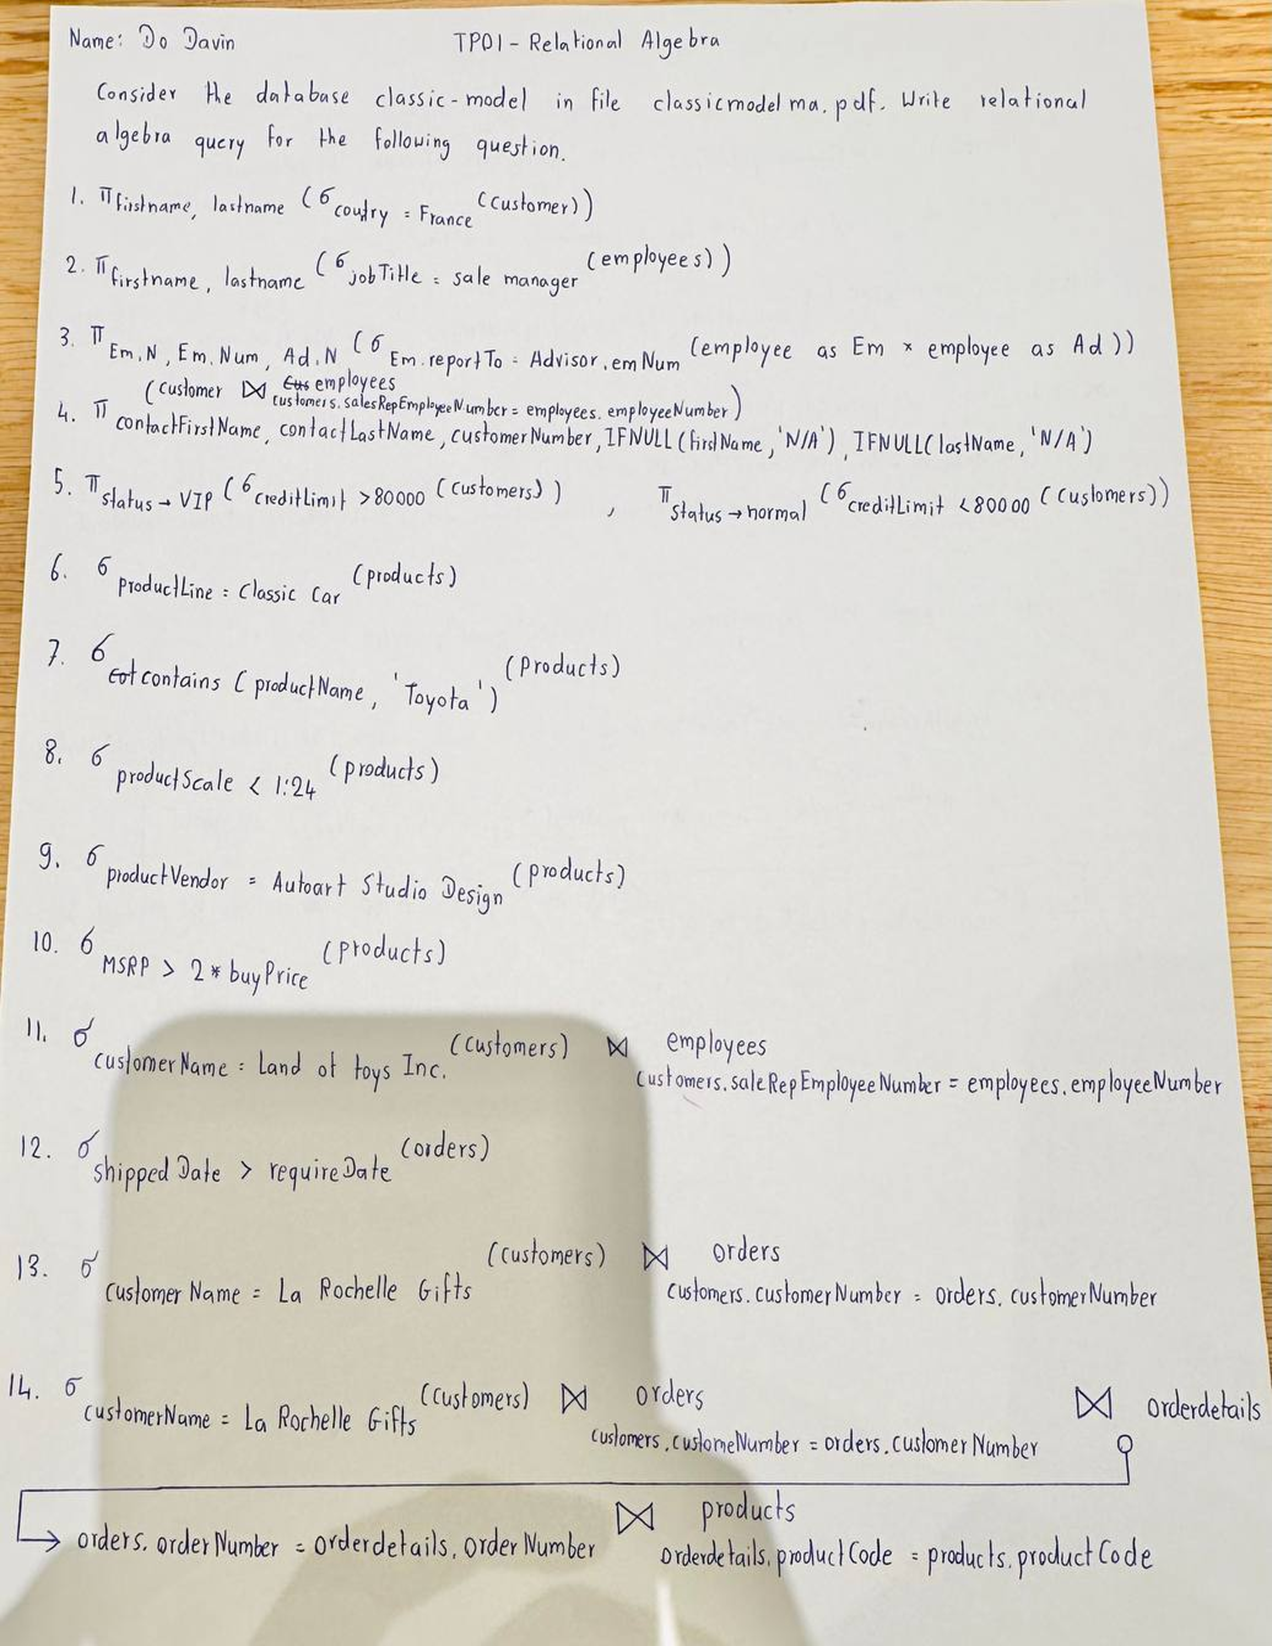 Name: Do Davin TP01 - Relational Algebra
Consider the database classic-model in file classicmodel ma.pdf. Write relational
algebra query for the following question.
1. π firstname, lastname (σ coutry = France (customer))
2. π firstname, lastname (σ jobTitle = sale manager (employees))
3. π Em.N, Em.Num, Ad.N (σ Em.reportTo = Advisor.emNum (employee as Em × employee as Ad))
(customer ⋈ employees
customers.salesRepEmployeeNumber = employees.employeeNumber)
4. π contactFirstName, contactLastName, customerNumber, IFNULL(firstName, 'N/A'), IFNULL(lastName, 'N/A')
5. π status → VIP (σ creditLimit > 80000 (customers)) , π status → normal (σ creditLimit < 80000 (customers))
6. σ productLine = Classic Car (products)
7. σ contains (productName, 'Toyota') (products)
8. σ productScale < 1:24 (products)
9. σ productVendor = Autoart Studio Design (products)
10. σ MSRP > 2 * buyPrice (products)
11. σ customerName = Land of toys Inc. (customers) ⋈ employees
customers.saleRepEmployeeNumber = employees.employeeNumber
12. σ shippedDate > requireDate (orders)
13. σ customerName = La Rochelle Gifts (customers) ⋈ orders
customers.customerNumber = orders.customerNumber
14. σ customerName = La Rochelle Gifts (customers) ⋈ orders ⋈ orderdetails
customers.customeNumber = orders.customerNumber
⋈ products
orders.orderNumber = orderdetails.orderNumber orderdetails.productCode = products.productCode